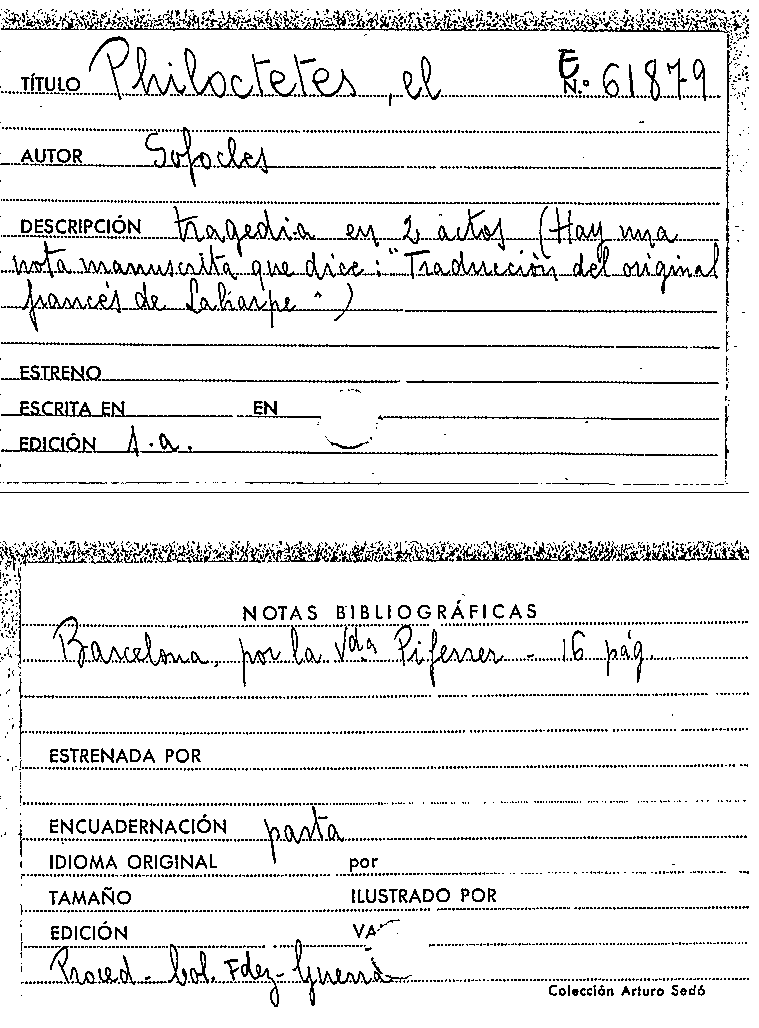 TÍTULO Philoctetes, el E N.º 61879
AUTOR Sofocles
DESCRIPCIÓN tragedia en 2 actos (Hay una
nota manuscrita que dice: "Traducción del original
francés de Laharpe")
ESTRENO
ESCRITA EN EN
EDICIÓN s.a.
NOTAS BIBLIOGRÁFICAS
Barcelona, por la Vda Piferrer - 16 pág.
ESTRENADA POR
ENCUADERNACIÓN pasta
IDIOMA ORIGINAL por
TAMAÑO ILUSTRADO POR
EDICIÓN VA
Proced - Col. Fdez-Guerra
Colección Arturo Sedó